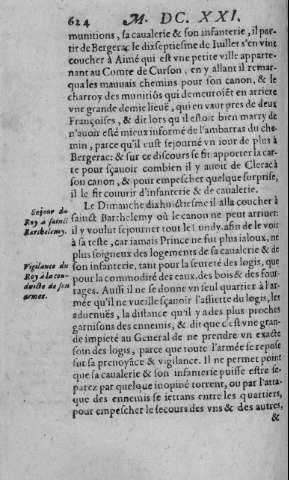 624 M. DC. XXI.
munitions, sa caualerie & son infanterie, il par-
tit de Bergerac le dixseptiesme de Iuillet s'en vint
coucher à Aimé qui est vne petite ville apparte-
nant au Comte de Curson, en y allant il remar-
qua les mauuais chemins pour son canon, & le
charroy des munitiõs qui demeuroiẽt en arriere
vne grande demie lieuë, qui en vaut pres de deux
Françoises, & dit lors qu'il estoit bien marry de
n'auoir esté mieux informé de l'ambarras du che-
min, parce qu'il eust sejourné vn iour de plus à
Bergerac: & sur ce discours se fit apporter la car-
te pour sçauoir combien il y auoit de Clerac à
son canon, & pour empescher quelque surprise,
il le fit couurir d'infanterie & de caualerie.
Le Dimanche dixhuictiesme il alla coucher à
sainct Barthelemy où le canon ne peut arriuer:
il y voulut sejourner tout le Lundy, afin de le voir
à sa teste, car iamais Prince ne fut plus ialoux, ne
plus soigneux des logements de sa caualerie & de
son infanterie, tant pour la seureté des logis, que
pour la commodité des eaux, des bois & des four-
rages. Aussi il ne se donne vn seul quartier à l'ar-
mée qu'il ne vueille sçauoir l'assiette du logis, les
aduenuës, la distance qu'il y a des plus proches
garnisons des ennemis, & dit que c'est vne gran-
de impieté au General de ne prendre vn exacte
soin des logis, parce que toute l'armée se repose
sur sa preuoyãce & vigilance. Il ne permet point
que sa caualerie & son infanterie puisse estre se-
parez par quelque inopiné torrent, ou par l'atta-
que des ennemis se iettans entre les quartiers,
pour empescher le secours des vns & des autres,
&
Sejour du
Roy à sainct
Barthelemy.
Vigilance du
Roy à la con-
duicte de son
armee.